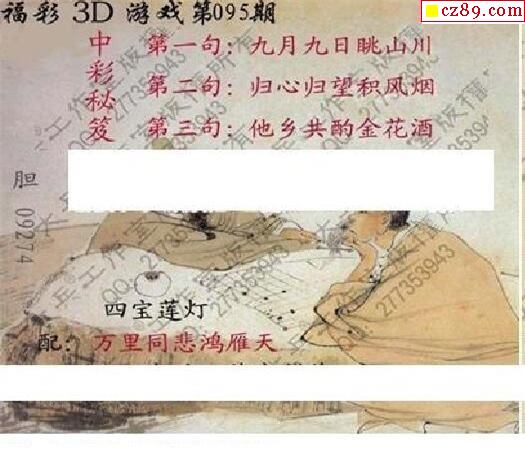 福彩 3D 游戏第095期
cz89.com
中彩秘笈
第一句：九月九日眺山川
第二句：归心归望积风烟
第三句：他乡共酌金花酒
胆 09274
四宝莲灯
配：万里同悲鸿雁天
兵工作室版权所有
QQ:277353943